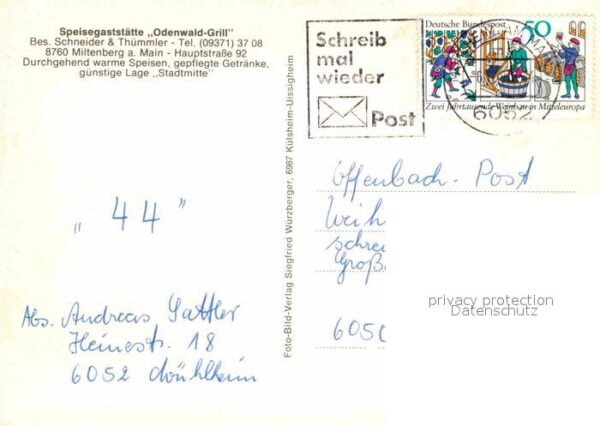 Speisegaststätte „Odenwald-Grill"
Bes. Schneider & Thümmler - Tel. (09371) 37 08
8760 Miltenberg a. Main - Hauptstraße 92
Durchgehend warme Speisen, gepflegte Getränke,
günstige Lage „Stadtmitte"
Schreib
mal
wieder
Post
Deutsche Bundespost 50
Zwei Jahrtausende Weinbau in Mitteleuropa
6052
Foto-Bild-Verlag Siegfried Würzberger, 6987 Külsheim-Uissigheim
„ 44 "
Abs. Andreas Sattler
Heinestr. 18
6052 Mühlheim
Offenbach-Post
Weih
schrei
Groß
605
privacy protection
Datenschutz